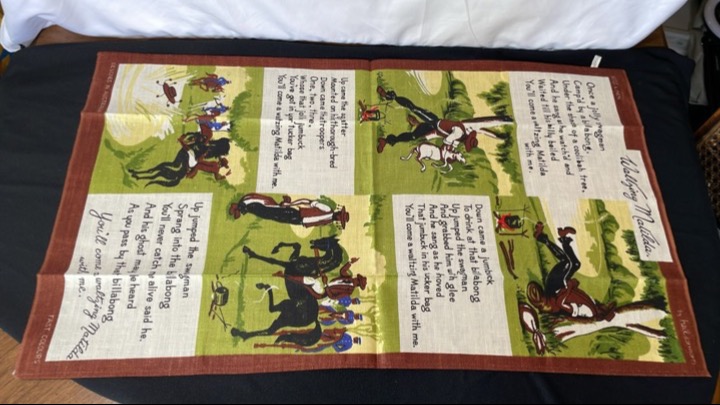 Waltzing Matilda.
Once a jolly swagman
Camp'd by a billabong,
Under the shade of a coolibah tree,
And he sang as he watch'd and
Waited till his billy boiled
You'll come a waltzing Matilda
with me.
Down came a jumbuck
To drink at that billabong
Up jumped the swagman
And grabbed him with glee
And he sang as he shoved
That jumbuck in his tucker bag
You'll come a waltzing Matilda with me.
Up came the squatter
Mounted on his thorough-bred
Down came the troopers
One, two, three,
Whose that jolly jumbuck
You've got in your tucker bag
You'll come a waltzing Matilda with me.
Up jumped the swagman
Sprang into the billabong
You'll never catch me alive said he,
And his ghost may be heard
As you pass by the billabong
You'll come a waltzing Matilda
with me.
FAST COLOURS